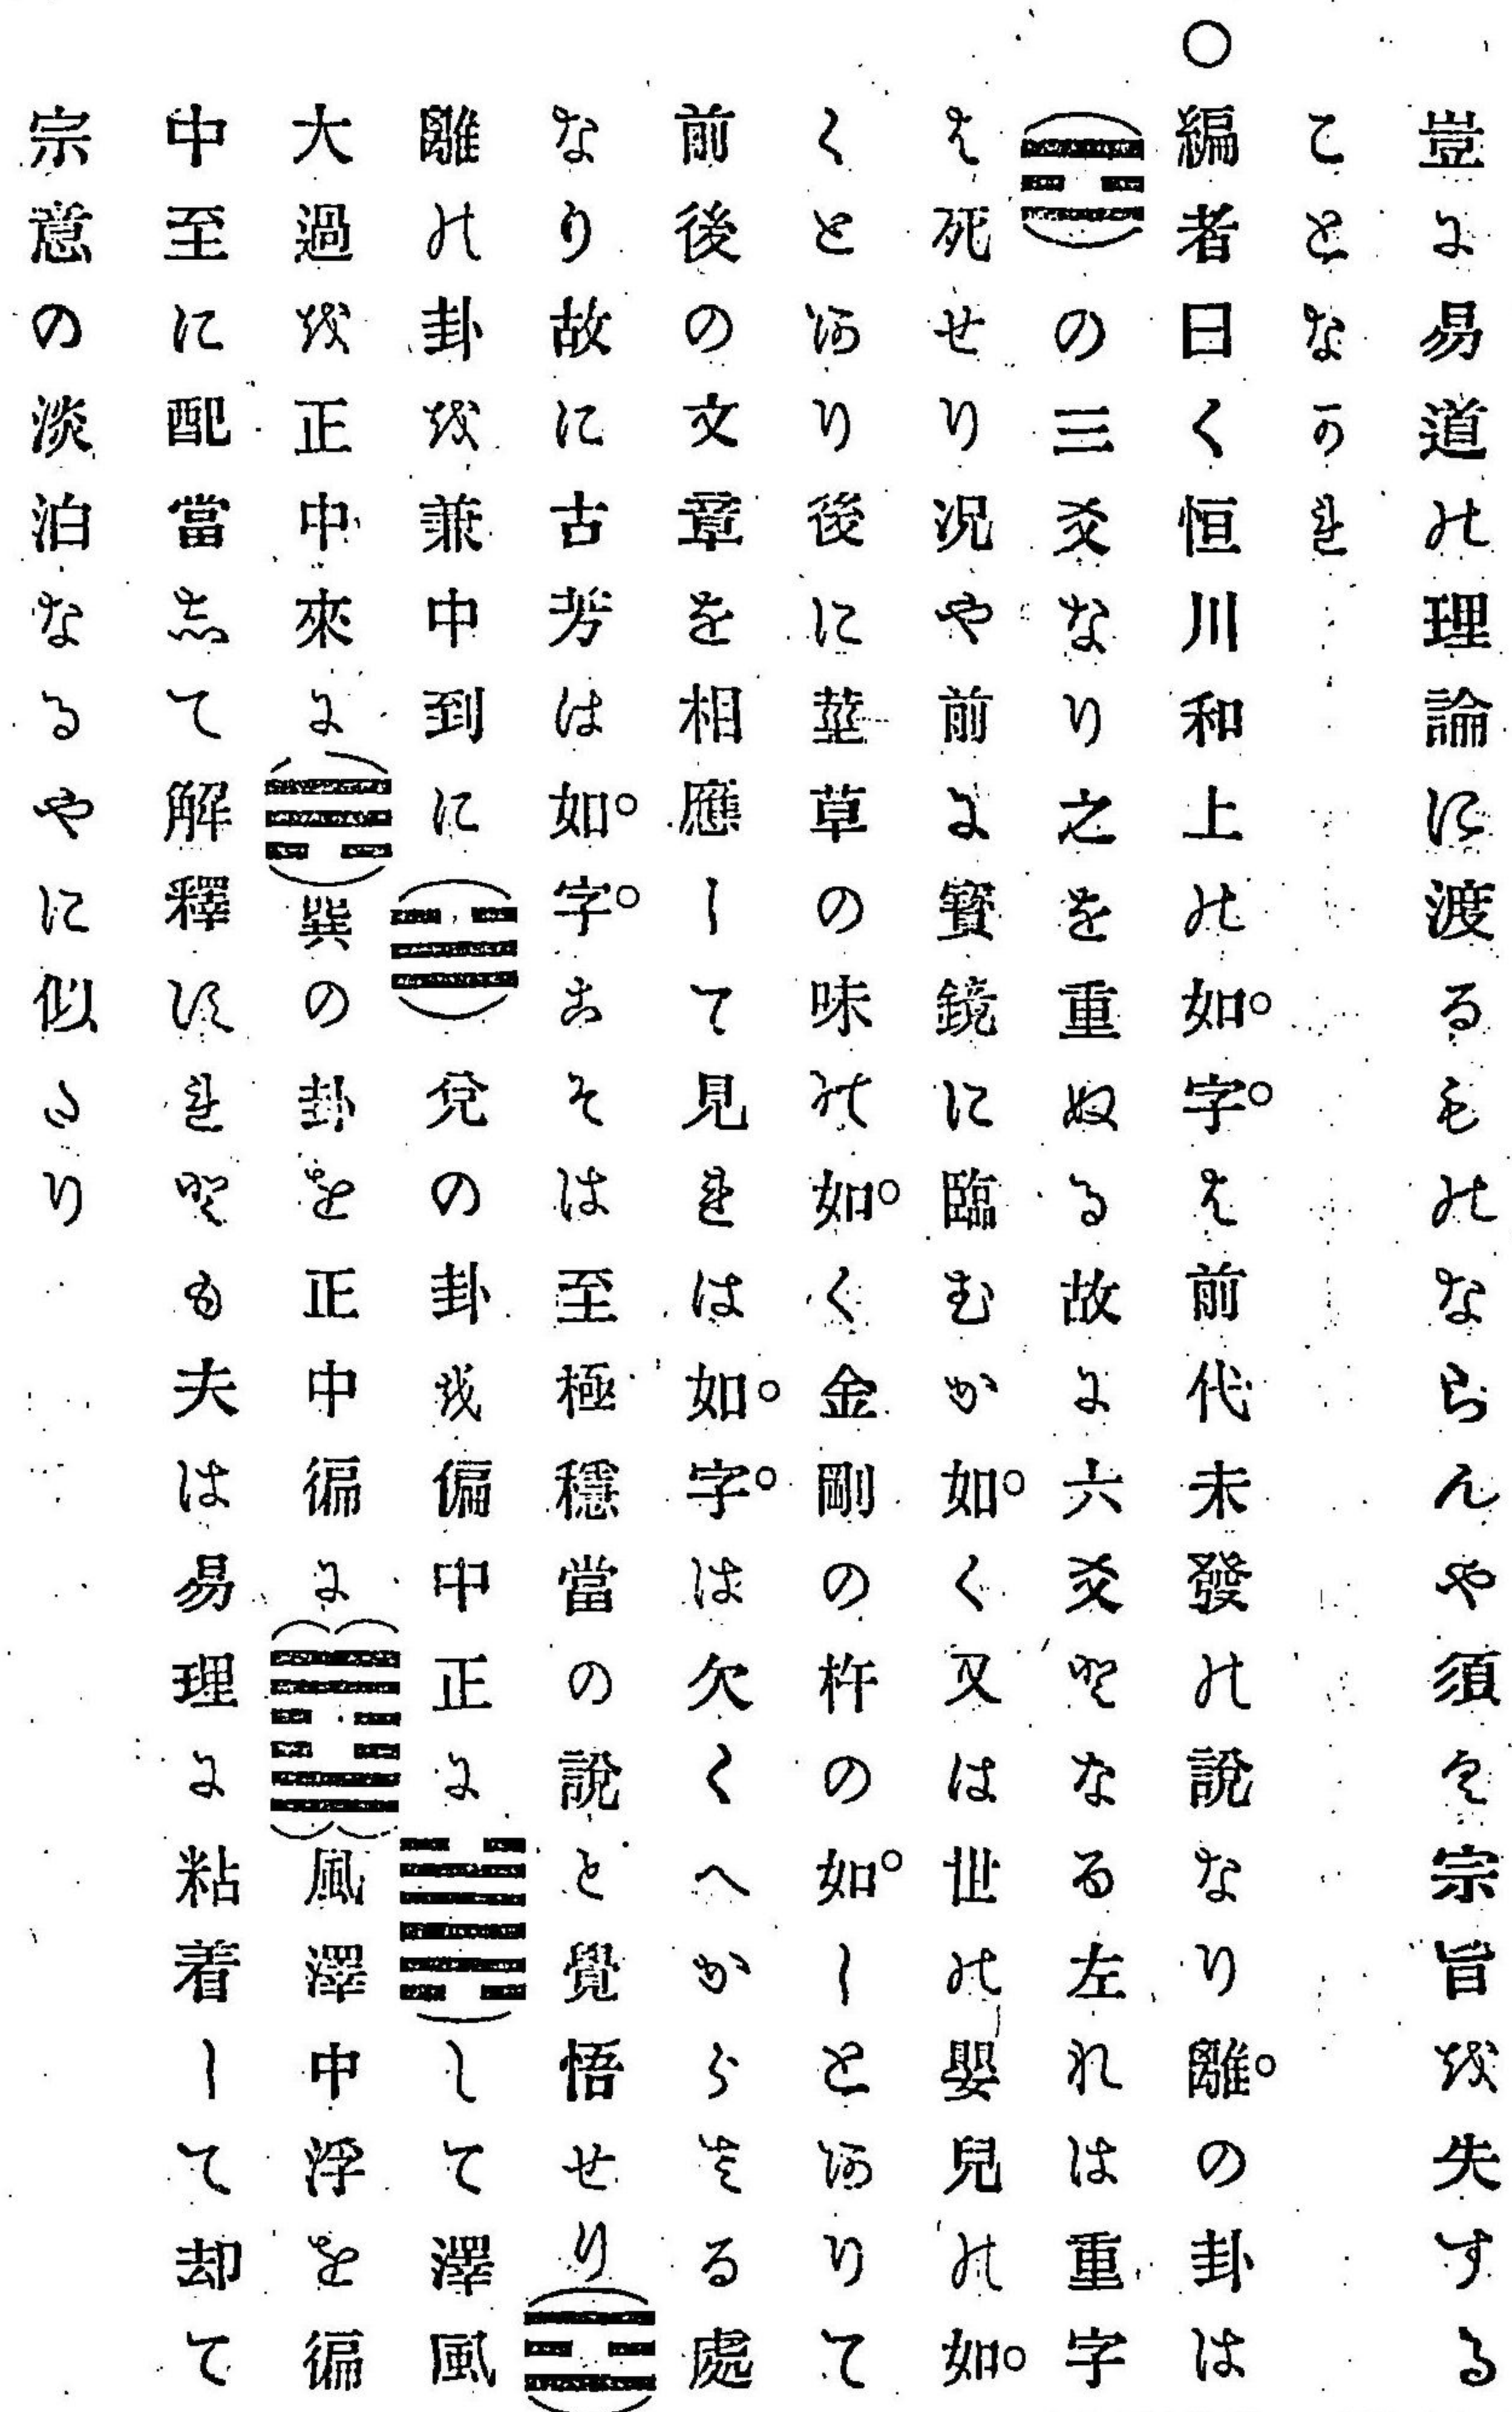 豈に易道の理論に渡るものならんや須く宗旨を失する
ことなかれ
○編者曰く恒川和上の如字は前代未發の説なり離の卦は
(☲)の三爻なり之を重ぬる故に六爻となる左れは重字
は死せり況や前に寳鏡に臨むか如く又は世の嬰兒の如
くとあり後に荎草の味の如く金剛の杵の如しとありて
前後の文章を相應して見れは如字は欠くへからさる處
なり故に古芳は如字こそは至極穩當の説と覺悟せり(☲)
離の卦を兼中到に(☱)兌の卦を偏中正に(䷛)して澤風
大過を正中來に(☴)巽の卦を正中徧に(䷼)風澤中浮を徧
中至に配當して解釋すれとも夫は易理に粘着して却て
宗意の淡泊なるやに似たり